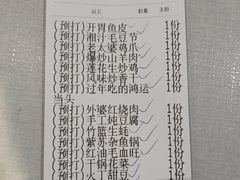 品名 数量 金额
(预打)开胃鱼皮 1份
(预打)湘汁毛豆节 1份
(预打)老太婆鸡爪 1份
(预打)爆炒山羊肉 1份
(预打)莲花生炒鸡 1份
(预打)风味炒香干 1份
(预打)过年吃的鸿运
当头 1份
(预打)外婆红烧肉 1份
(预打)手工炖豆腐 1份
(预打)竹篮生蚝 1份
(预打)紫苏鱼锅 1份
(预打)红油毛血旺 1份
(预打)干锅花菜 1份